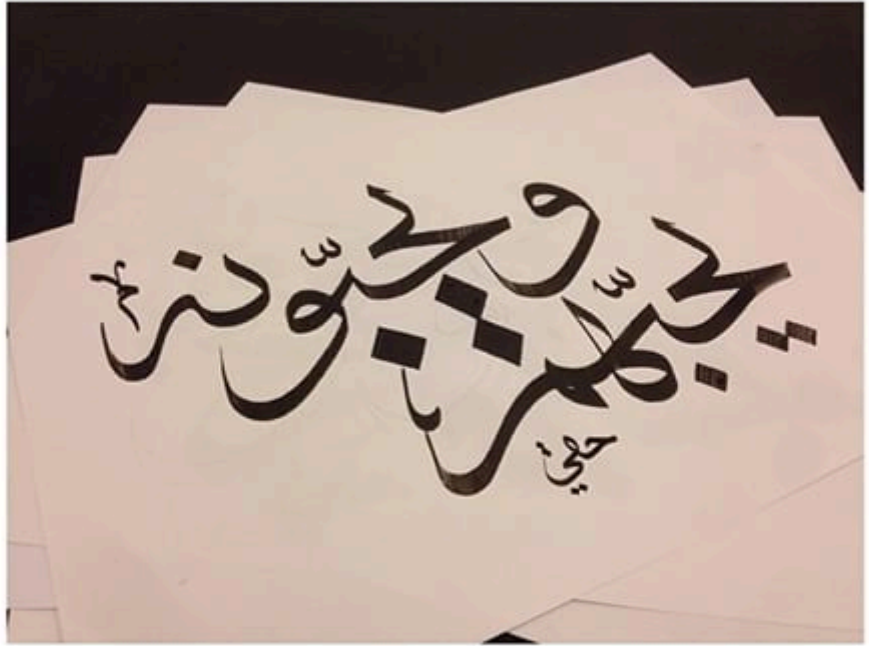 يحبهم ويحبونه
حقي